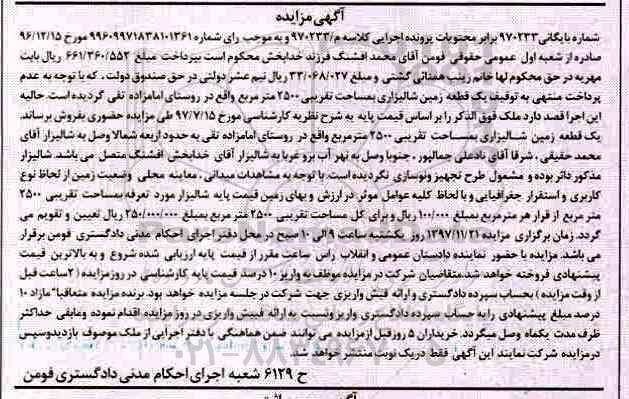 آگهی مزایده
شماره بایگانی ۹۷۰۲۳۳ برابر محتویات پرونده اجرایی کلاسه م/۹۷۰۲۳۳ و به موجب رای شماره ۹۹۶۰۹۹۷۱۸۳۸۱۰۱۳۶۱ مورخ ۹۶/۱۲/۱۵
صادره از شعبه اول عمومی حقوقی فومن آقای محمد افشنگ فرزند خدابخش محکوم است بپرداخت مبلغ ۶۶۱/۳۶۰/۵۵۲ ریال بابت
مهریه در حق محکوم لها خانم زینب همتائی گشتی و مبلغ ۳۳/۰۶۸/۰۲۷ ریال نیم عشر دولتی در حق صندوق دولت . که با توجه به عدم
پرداخت منتهی به توقیف یک قطعه زمین شالیزاری بمساحت تقریبی ۲۵۰۰ متر مربع واقع در روستای امامزاده تقی گردیده است. حالیه
این اجرا قصد دارد ملک فوق الذکر را بر اساس قیمت پایه به شرح نظریه کارشناسی مورخ ۹۷/۷/۱۵ طی مزایده حضوری بفروش برساند.
یک قطعه زمین شــالیزاری بمســاحت تقریبی ۲۵۰۰ مترمربع واقع در روستای امامزاده تقی به حدود اربعه شمالا وصل به شالیزار آقای
محمد حقیقی ، شرقا آقای نادعلی جمالپور . جنوبا وصل به نهر آب برو غربا به شالیزار آقای خدابخش افشنگ متصل می باشد. شالیزار
مذکور دائر بوده و مشمول طرح تجهیز ونوسازی نگردیده است. با توجه به مشاهدات میدانی . معاینه محلی وضعیت زمین از لحاظ نوع
کاربری و استقرار جغرافیایی و با لحاظ کلیه عوامل موثر در ارزش و بهای زمین قیمت پایه شالیزار مورد تعرفه بمساحت تقریبی ۲۵۰۰
متر مربع از قرار هر مترمربع بمبلغ ۱۰۰/۰۰۰ ریال و برای کل مساحت تقریبی ۲۵۰۰ متر مربع بمبلغ ۲۵۰/۰۰۰/۰۰۰ ریال تعیین و تقویم می
گردد. زمان برگزاری مزایده ۱۳۹۷/۱۱/۲۱ روز یکشنبه ساعت ۹ الی ۱۰ صبح در محل دفتر اجرای احکام مدنی دادگستری فومن برقرار
می باشد. مزایده با حضور نماینده دادستان عمومی و انقلاب راس ساعت مقرر از قیمت پایه ارزیابی شده شروع و به بالاترین قیمت
پیشنهادی فروخته خواهد شد.متقاضیان شرکت در مزایده موظف به واریز ۱۰ درصد قیمت پایه کارشناسی در روز مزایده ( ۲ ساعت قبل
از وقت مزایده ) بحساب سپرده دادگستری و ارائه فیش واریزی جهت شرکت در جلسه مزایده خواهد بود. برنده مزایده متعاقبا" مازاد ۱۰
درصد مبلغ پیشنهادی رابه حساب سپرده دادگستری واریز ونسبت به ارائه فیش واریزی در روز مزایده اقدام نموده ومابقی حداکثر
ظرف مدت یکماه وصل میگردد. خریداران ۵ روز قبل از مزایده می توانند ضمن هماهنگی با دفتر اجرایی از ملک موصوف بازدیدوسپس
درمزایده شرکت نمایند این آگهی فقط در یک نوبت منتشر خواهد شد.
ح ۶۱۲۹ شعبه اجرای احکام مدنی دادگستری فومن